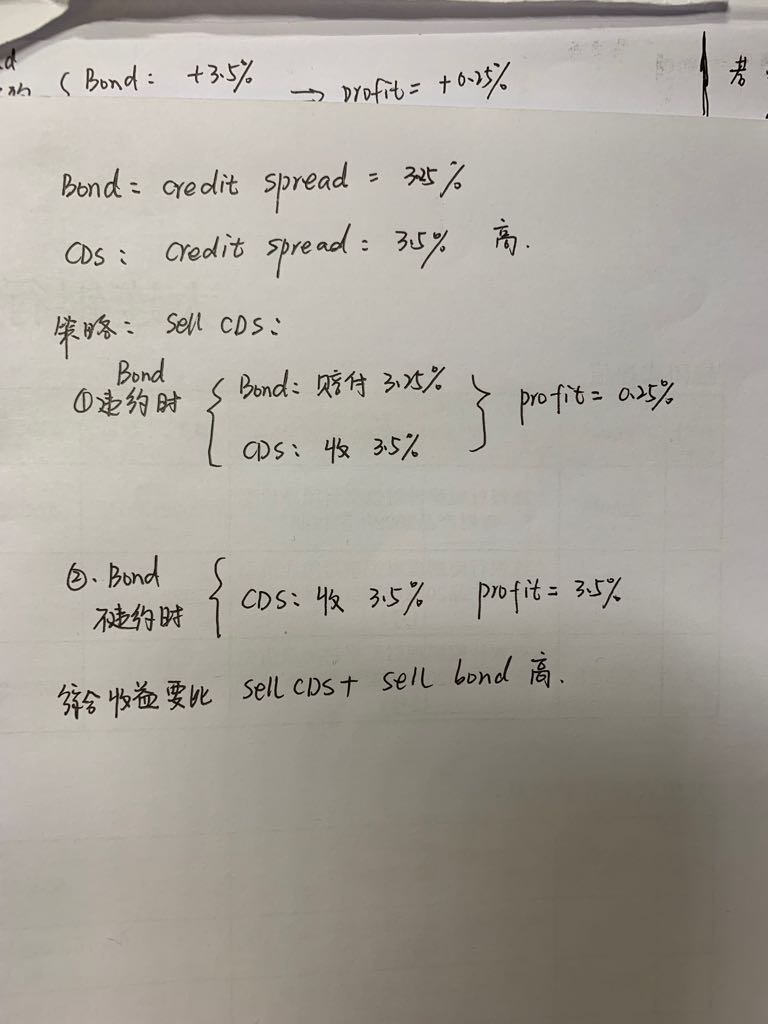 d
( Bond: +3.5% → profit = +0.25%
若
Bond = credit spread = 3.25%
CDS: credit spread: 3.5% 高.
策略: sell CDS:
Bond
①违约时 { Bond: 赔付 3.25% } profit = 0.25%
CDS: 收 3.5%
②. Bond
不违约时 { CDS: 收 3.5% profit = 3.5%
综合收益要比 sell CDS + sell bond 高.